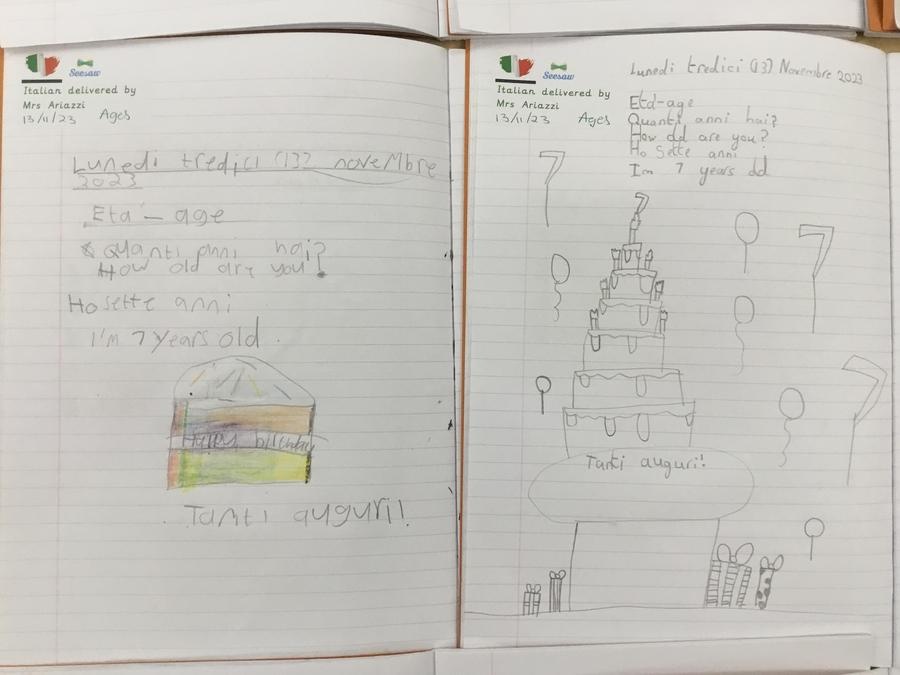 Seesaw
Italian delivered by
Mrs Ariazzi
13/11/23 Ages
Lunedi tredici (13) novembre
2023
Eta' - age
Quanti anni hai?
How old are you?
Ho sette anni
I'm 7 years old.
Happy birthday
Tanti auguri!
Seesaw
Italian delivered by
Mrs Ariazzi
13/11/23 Ages
Lunedi tredici (13) Novembre 2023
Età-age
Quanti anni hai?
How old are you?
Ho Sette anni
Im 7 years old
7
7
7
7
Tanti auguri!